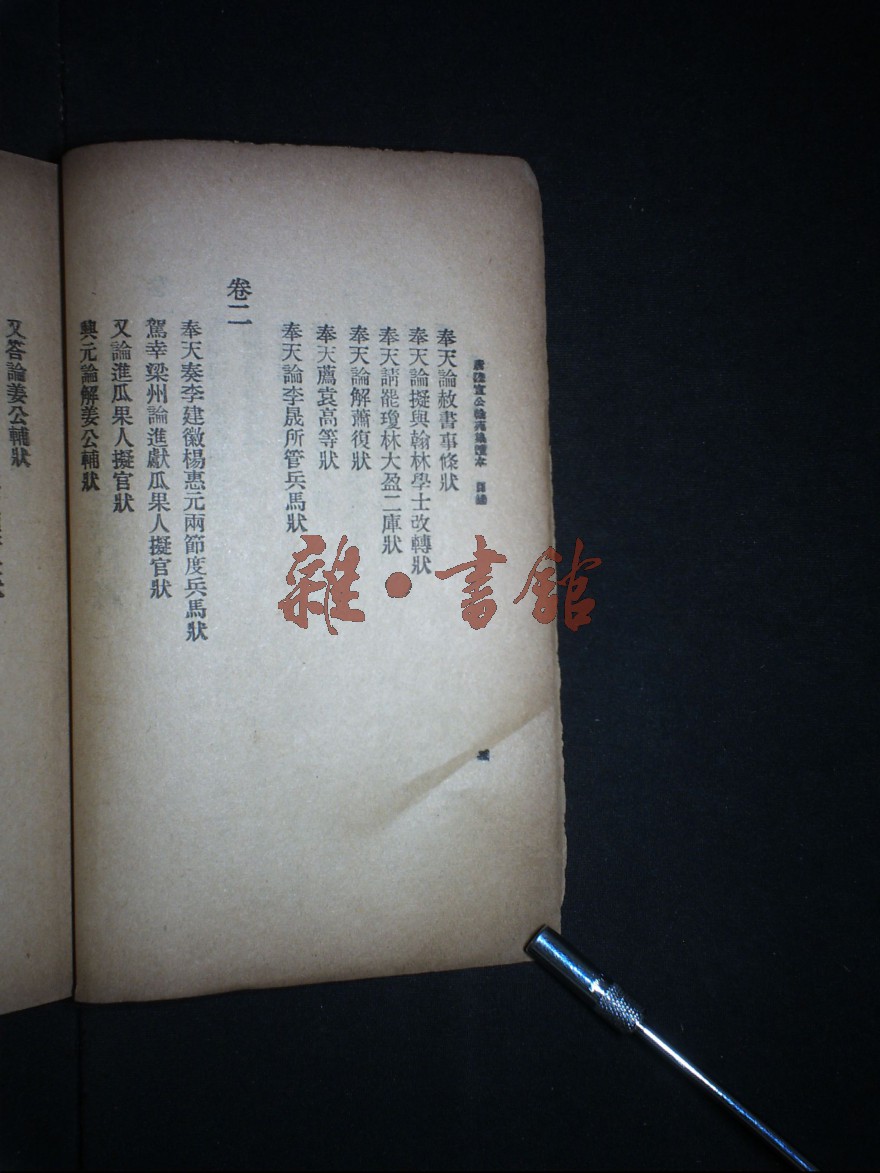 唐陸宣公翰苑集讀本 目錄
奉天論赦書事條狀
奉天論擬與翰林學士改轉狀
奉天請罷瓊林大盈二庫狀
奉天論解蕭復狀
奉天薦袁高等狀
奉天論李晟所管兵馬狀
卷二
奉天奏李建徽楊惠元兩節度兵馬狀
駕幸梁州論進獻瓜果人擬官狀
又論進瓜果人擬官狀
興元論解姜公輔狀
又答論姜公輔狀
雜·書館